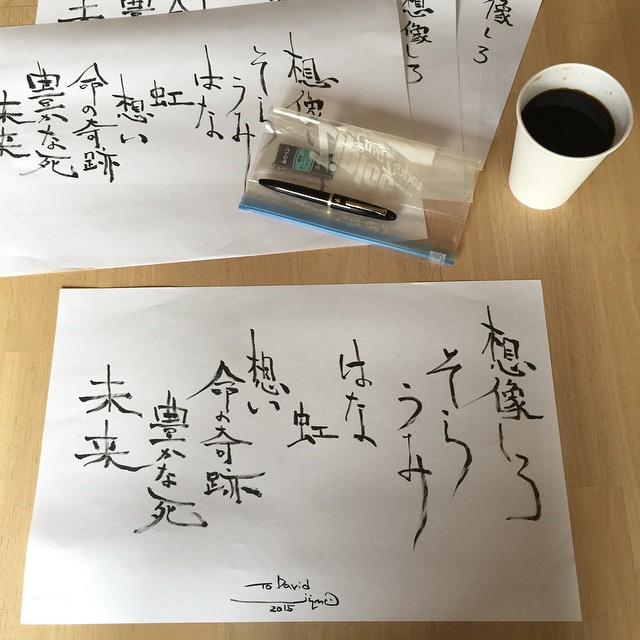 想像しろ
そら
うみ
はな
虹
想い
命の奇跡
豊かな死
未来
To David
2015
想像
そら
うみ
はな
虹
想い
命の奇跡
豊かな死
未来
想像しろ
像しろ